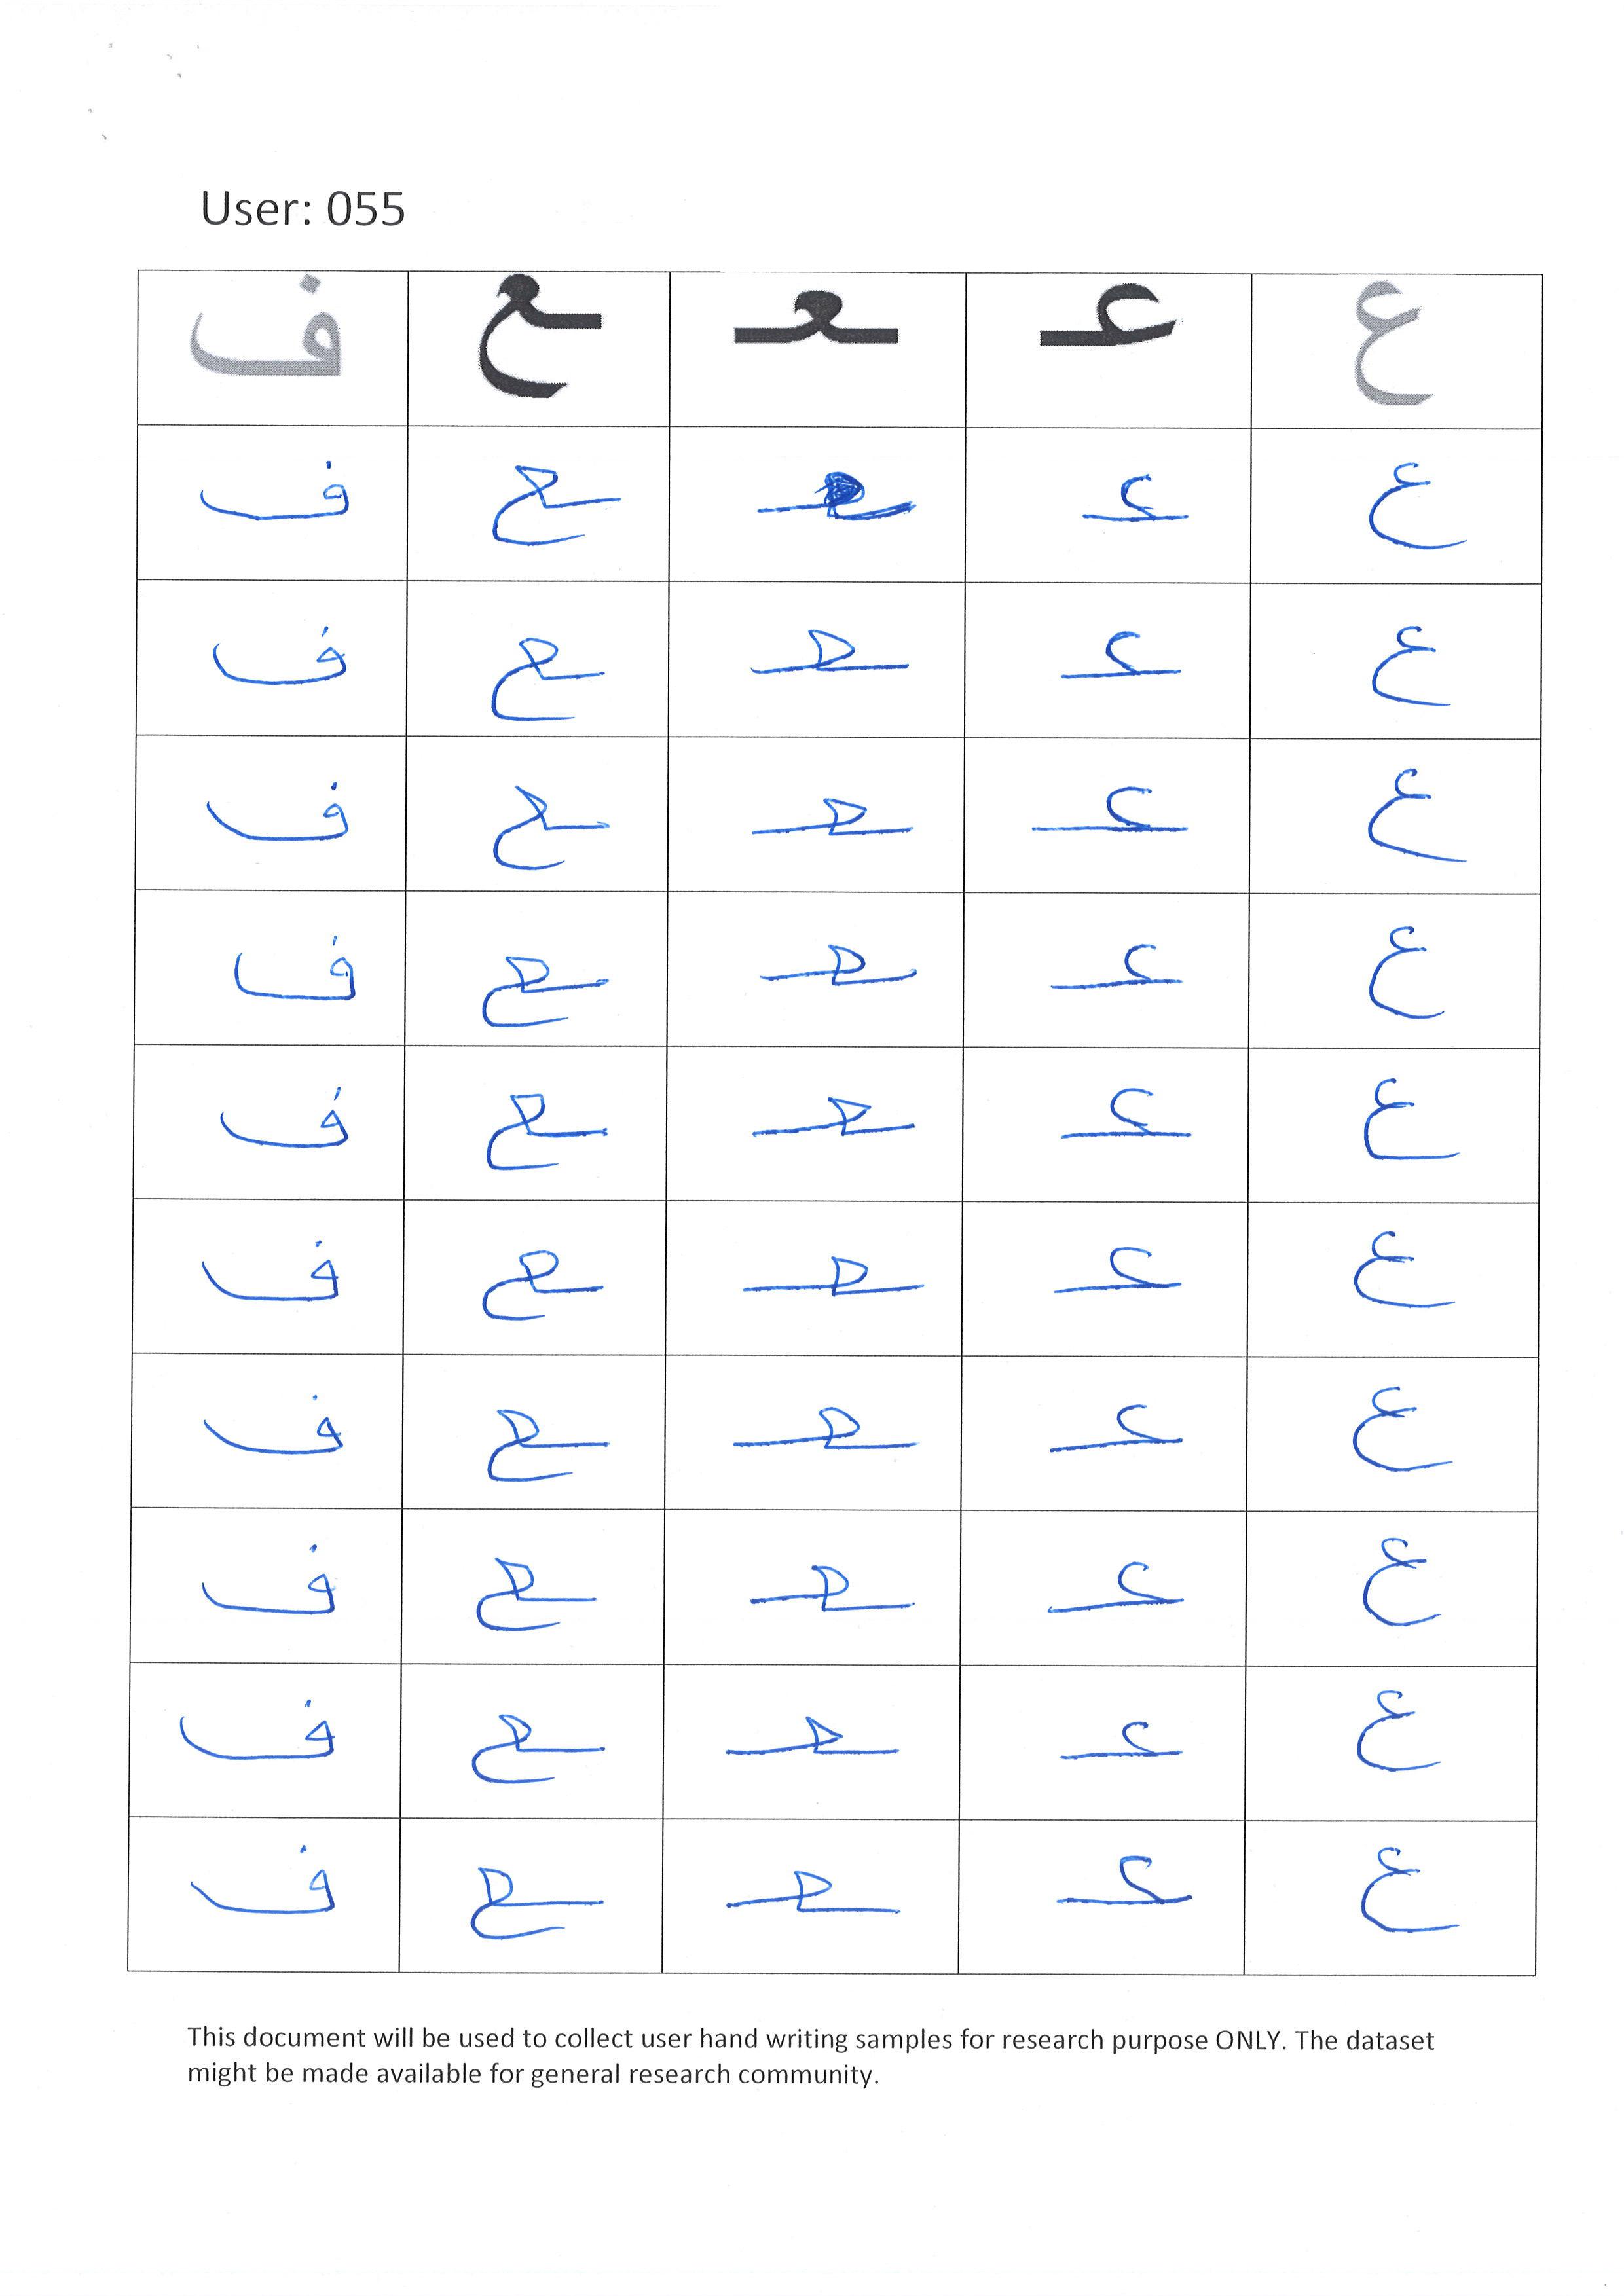 User: 055
ع عـ ـعـ ـع ف
ع عـ ـعـ ـع ف
ع عـ ـعـ ـع ف
ع عـ ـعـ ـع ف
ع عـ ـعـ ـع ف
ع عـ ـعـ ـع ف
ع عـ ـعـ ـع ف
ع عـ ـعـ ـع ف
ع عـ ـعـ ـع ف
ع عـ ـعـ ـع ف
ع عـ ـعـ ـع ف
This document will be used to collect user hand writing samples for research purpose ONLY. The dataset
might be made available for general research community.